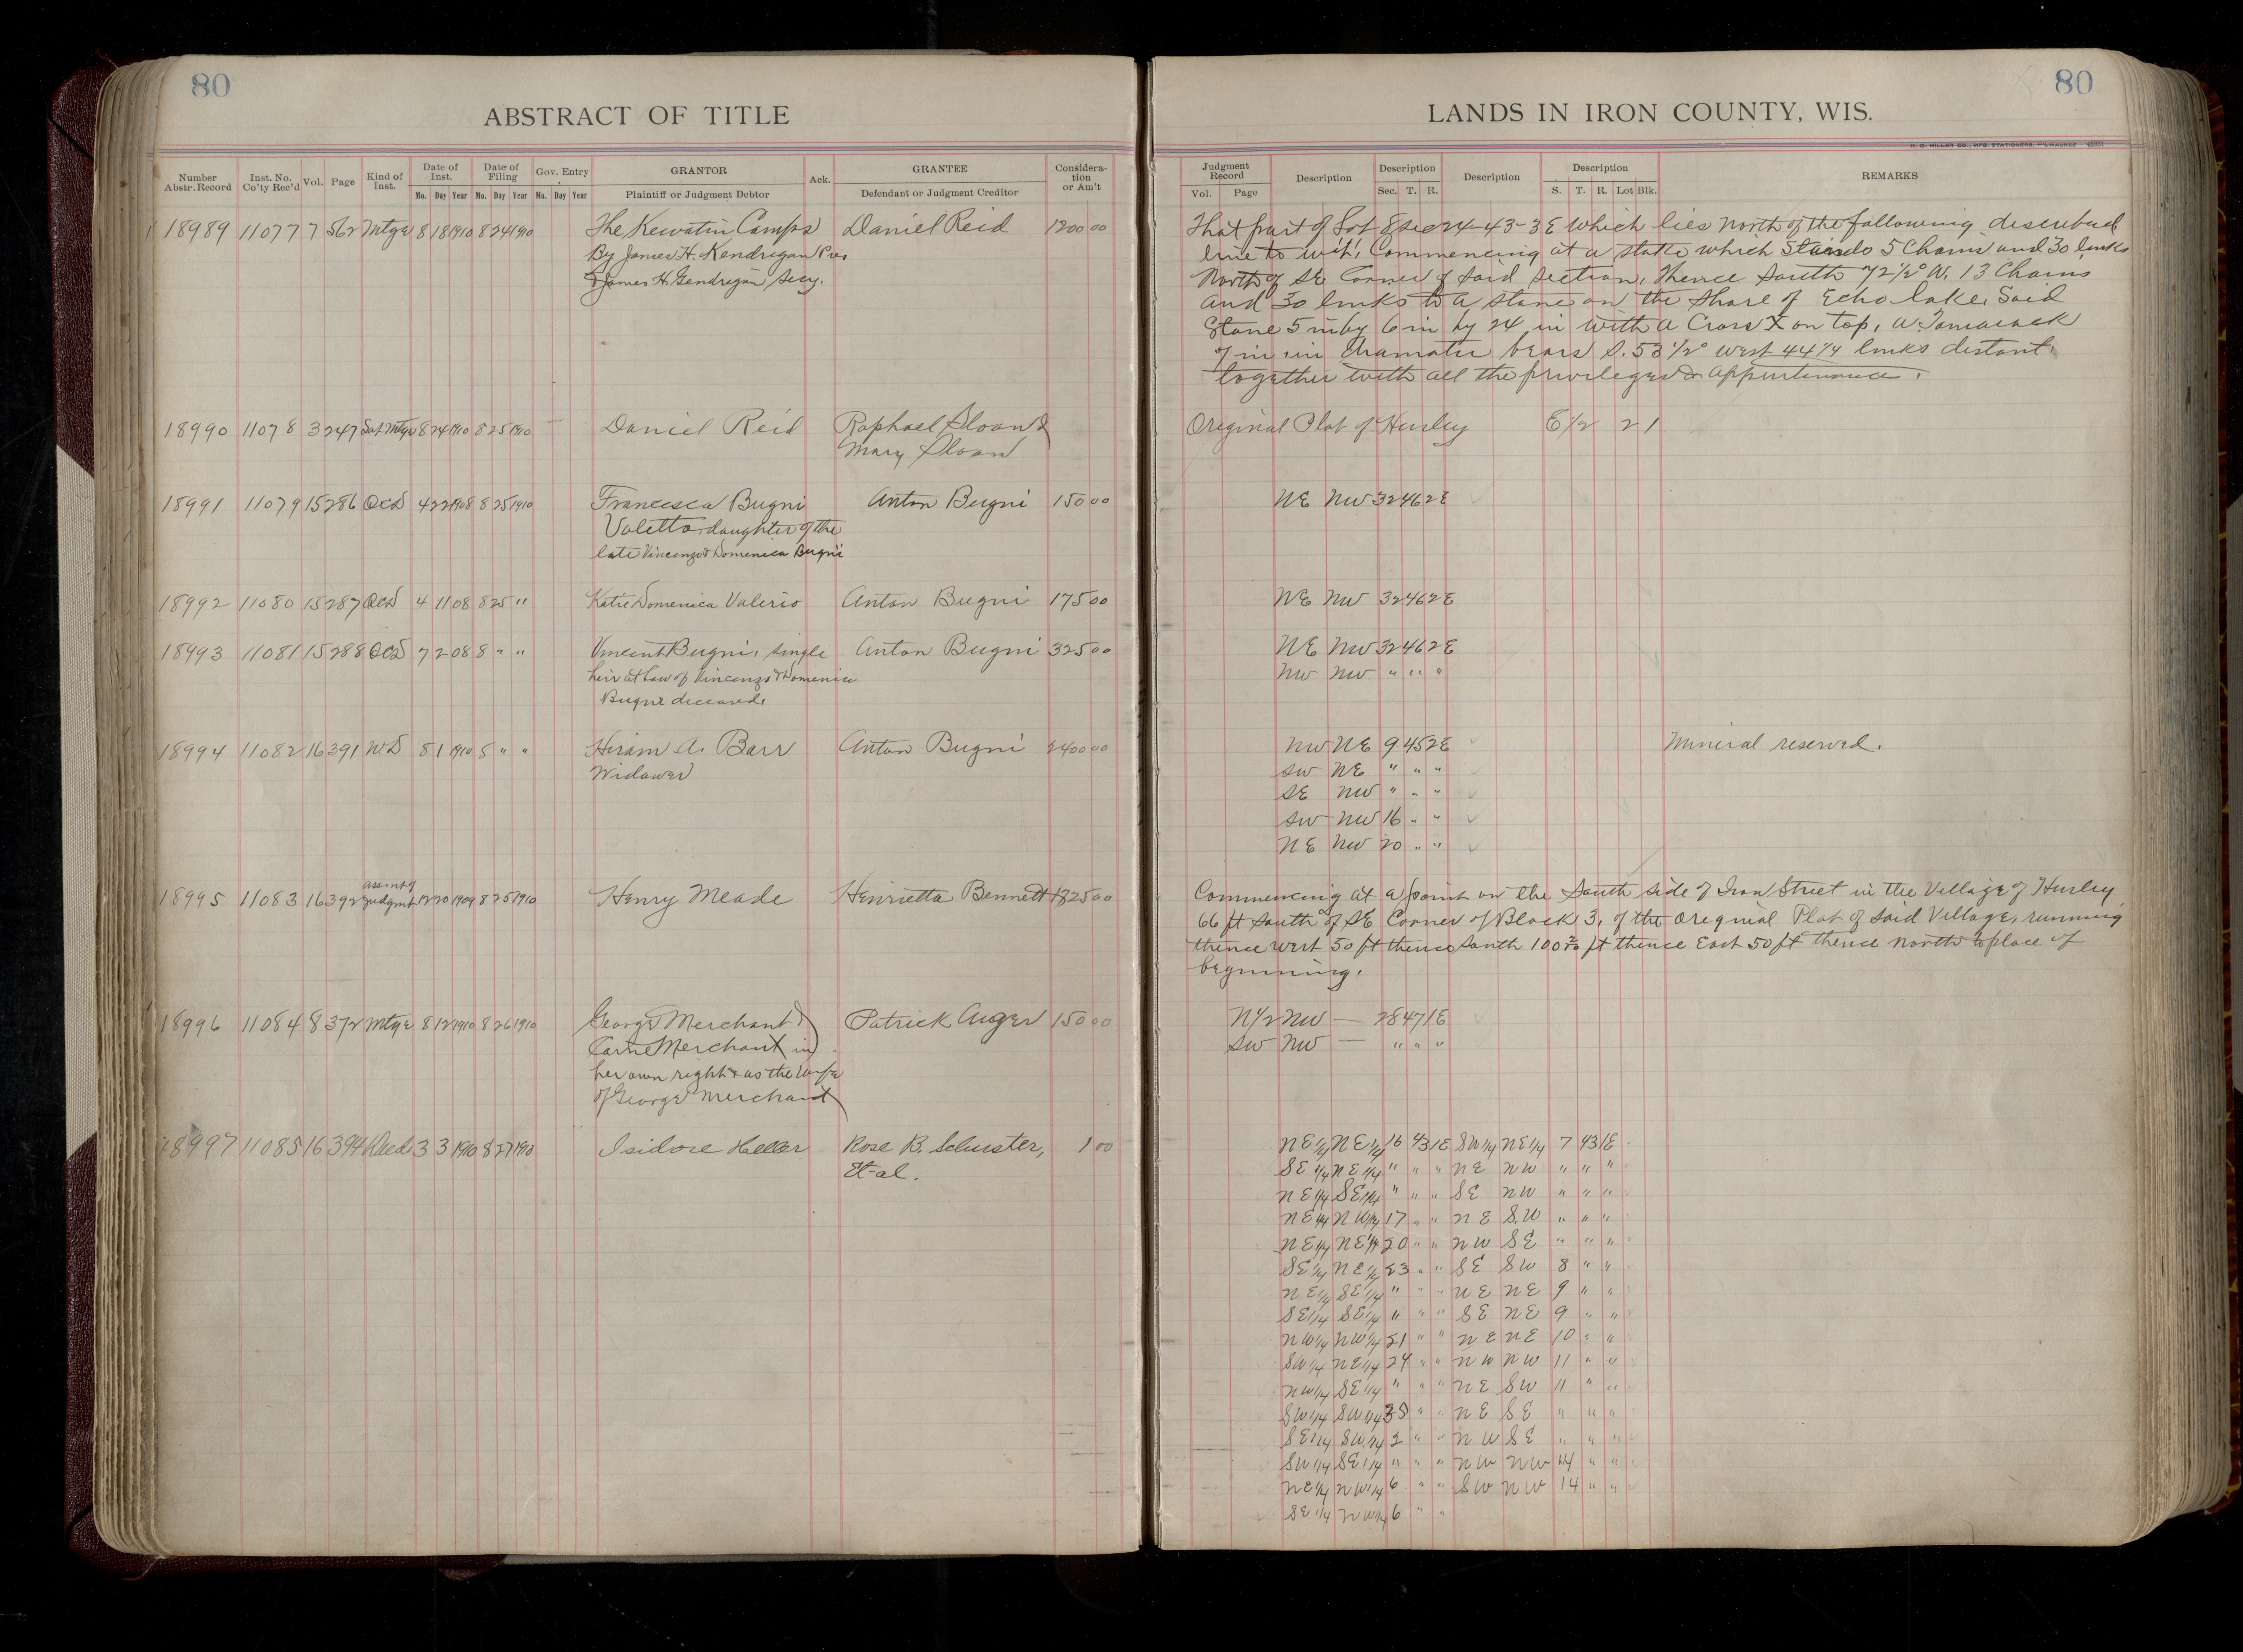 80
ABSTRACT OF TITLE
Number Abstr. Record Inst. No. Co'ty Rec'd Vol. Page Kind of Inst. Date of Inst. Date of Filing Gov. Entry GRANTOR Ack. GRANTEE Considera- tion or Am't
Mo. Day Year Mo. Day Year Mo. Day Year Plaintiff or Judgment Debtor Defendant or Judgment Creditor
18989 11077 7 562 Mtge 8 18 1910 8 24 1910 The Kewatin Camps Daniel Reid 1200 00
By James H. Kendrigan Pres
& James H. Gendrigan Secy.
18990 11078 3 247 Sat. Mtge 8 24 1910 8 25 1910 Daniel Reid Raphael Sloan &
Mary Sloan
18991 11079 15 286 QCD 4 22 1908 8 25 1910 Francesca Bugni Anton Bugni 150 00
Valetto, daughter of the
late Vincenzo & Domenica Bugni
18992 11080 15 287 QCD 4 11 08 8 25 " Katie Domenica Valerio Anton Bugni 175 00
18993 11081 15 288 QCD 7 2 08 8 " " Vincent Bugni, single Anton Bugni 325 00
heir at law of Vincenzo & Domenica
Bugni deceased.
18994 11082 16 391 WD 8 1 1910 8 " " Hiram A. Barr Anton Bugni 2400 00
Widower
18995 11083 16 392 Assmt of Judgmt 12 20 1909 8 25 1910 Henry Meade Henrietta Bennett 1825 00
18996 11084 8 372 Mtge 8 12 1910 8 26 1910 George Merchant & Patrick Auger 150 00
Carrie Merchant in
her own right & as the wife
of George Merchant
18997 11085 16 394 Deed 3 3 1910 8 27 1910 Isidore Heller Rose B. Schuster, 1 00
Et-al.
80
LANDS IN IRON COUNTY, WIS.
H. G. MILLER CO., MFG. STATIONERS, MILWAUKEE
Judgment Record Description Description Description Description REMARKS
Vol. Page Sec. T. R. S. T. R. Lot Blk.
That part of Lot 8 sec 24-43-3E which lies North of the following described
line to wit: Commencing at a stake which Stands 5 Chains and 30 links
North of SE Corner of said section, thence South 72½° W. 13 Chains
and 30 links to a stone on the shore of Echo lake, Said
Stone 5 in by 6 in by 24 in with a Cross X on top, a Tamarack
7 in in diamater bears S. 53½° west 44¼ links distant,
together with all the privileges & appurtenance.
Original Plat of Hurley E½ 2 1
NE NW 32 46 2E
NE NW 32 46 2E
NE NW 32 46 2E
NW NW " " "
NW NE 9 45 2E Mineral reserved.
SW NE " " "
SE NW " " "
SW NW 16 " "
NE NW 20 " "
Commencing at a point on the South side of Iron Street in the Village of Hurley
66 ft South of SE Corner of Block 3, of the Original Plat of said Village, running
thence west 50 ft thence South 100 ft thence East 50 ft thence North to place of
beginning.
N½ NW — 28 47 1E
SW NW — " " "
NE¼ NE¼ 16 43 1E SW¼ NE¼ 7 43 1E
SE¼ NE¼ " " " NE NW " " "
NE¼ SE¼ " " " SE NW " " "
NE¼ NW¼ 17 " " NE SW " " "
NE¼ NE¼ 20 " " NW SE " " "
SE¼ NE¼ 23 " " SE SW 8 " "
NE¼ SE¼ " " " NE NE 9 " "
SE¼ SE¼ " " " SE NE 9 " "
NW¼ NW¼ 21 " " NE NE 10 " "
SW¼ NE¼ 24 " " NW NW 11 " "
NW¼ SE¼ " " " NE SW 11 " "
SW¼ SW¼ 35 " " NE SE " " "
SE¼ SW¼ 2 " " NW SE " " "
SW¼ SE¼ " " " NW NW 14 " "
NE¼ NW¼ 6 " " SW NW 14 " "
SE¼ NW¼ 6 " "